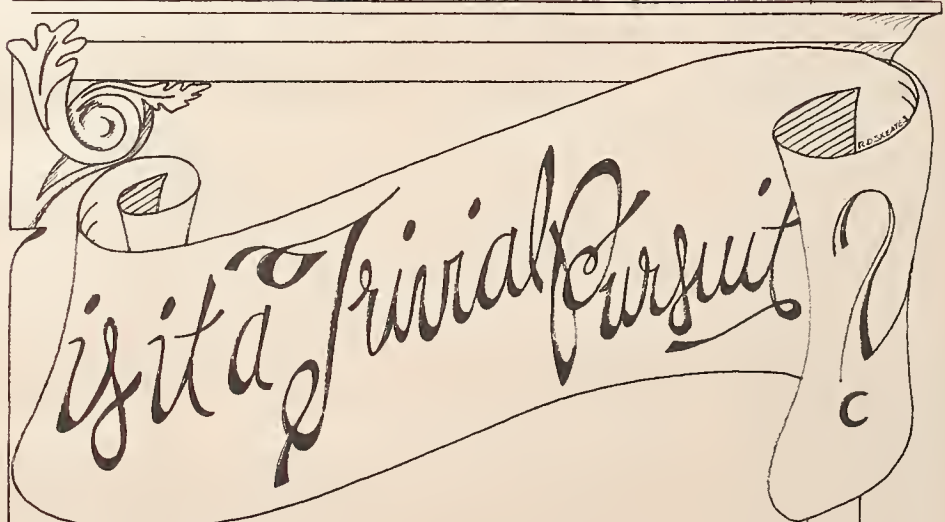 is it a Trivial Pursuit ?
R.D. SKEATES